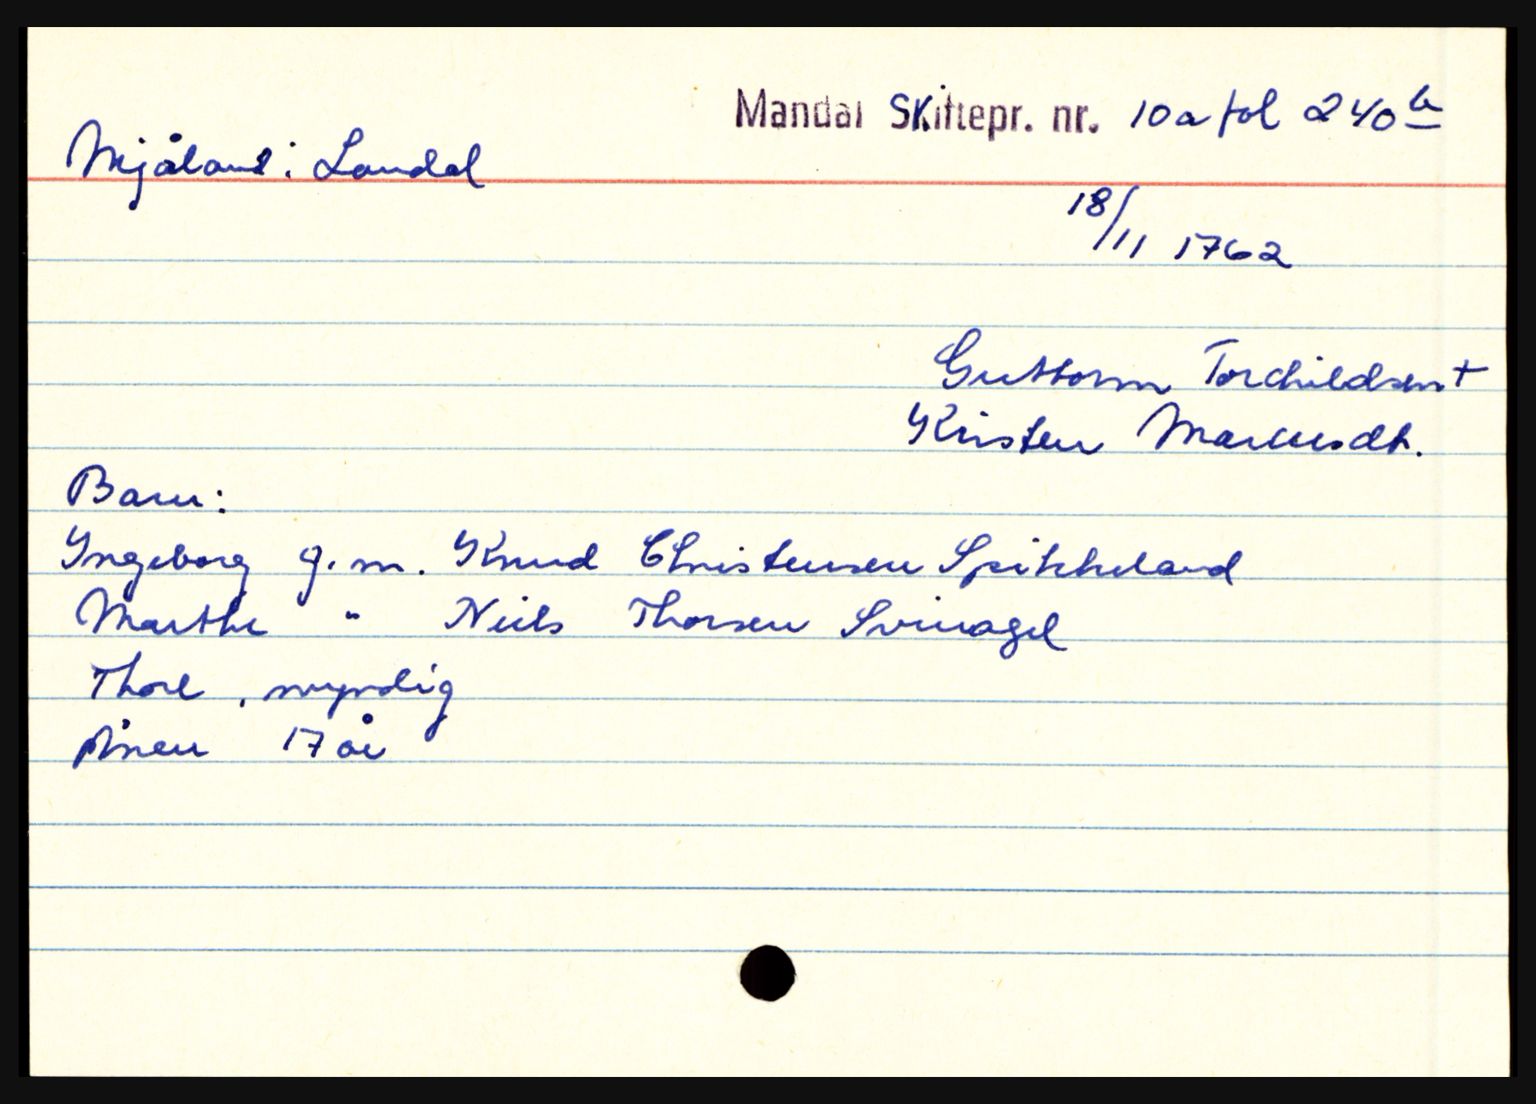 Mandal Skiftepr. nr. 10a fol 240b
Mjåland i Laudal
18/11 1762
Guttorm Torchildsen +
Kristen Marcusdt.
Barn:
Ingeborg g.m. Knud Christensen Spikkeland
Marthe " Niels Thorsen Svinagel
Thore, myndig
Ånen 17 år